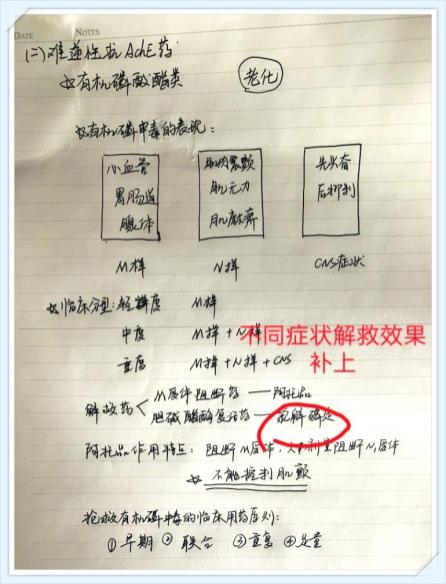 DATE
NOTES:
(二) 难逆性抗AchE药
☆有机磷酸酯类
老化
☆有机磷中毒的表现:
心血管
胃肠道
腺体
肌肉震颤
肌无力
肌麻痹
先兴奋
后抑制
M样
N样
CNS症状
☆临床分型:轻度 M样
中度 M样+N样
重度 M样+N样+CNS
不同症状解救效果
补上
解救药
M受体阻断药 — 阿托品
胆碱酯酶复活药 — 氯解磷定
阿托品作用特点: 阻断M受体, 大剂量阻断N₁受体
☆ 不能控制肌颤
抢救有机磷中毒的临床用药原则:
①早期 ② 联合 ③重复 ④足量